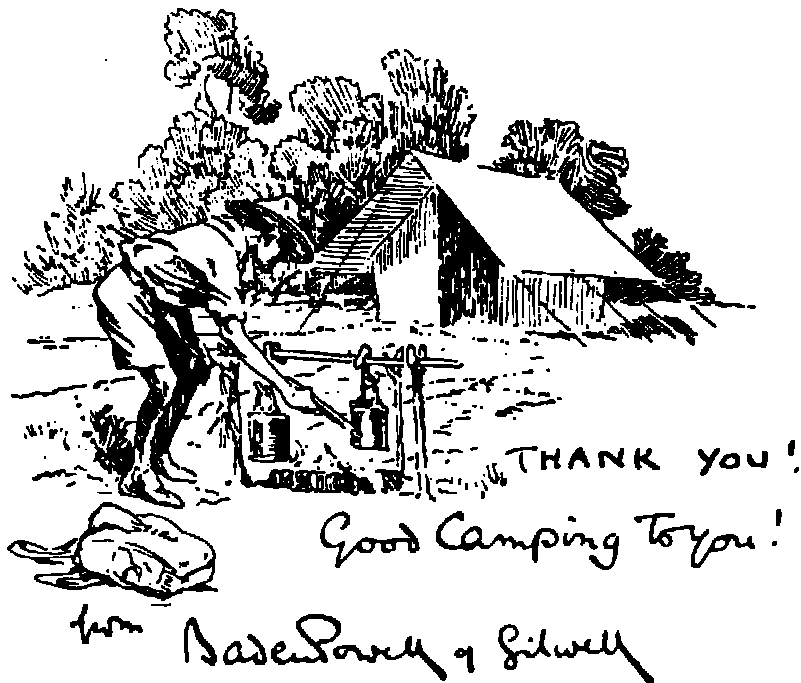 THANK YOU!
Good Camping To You!
from
Baden Powell of Gilwell